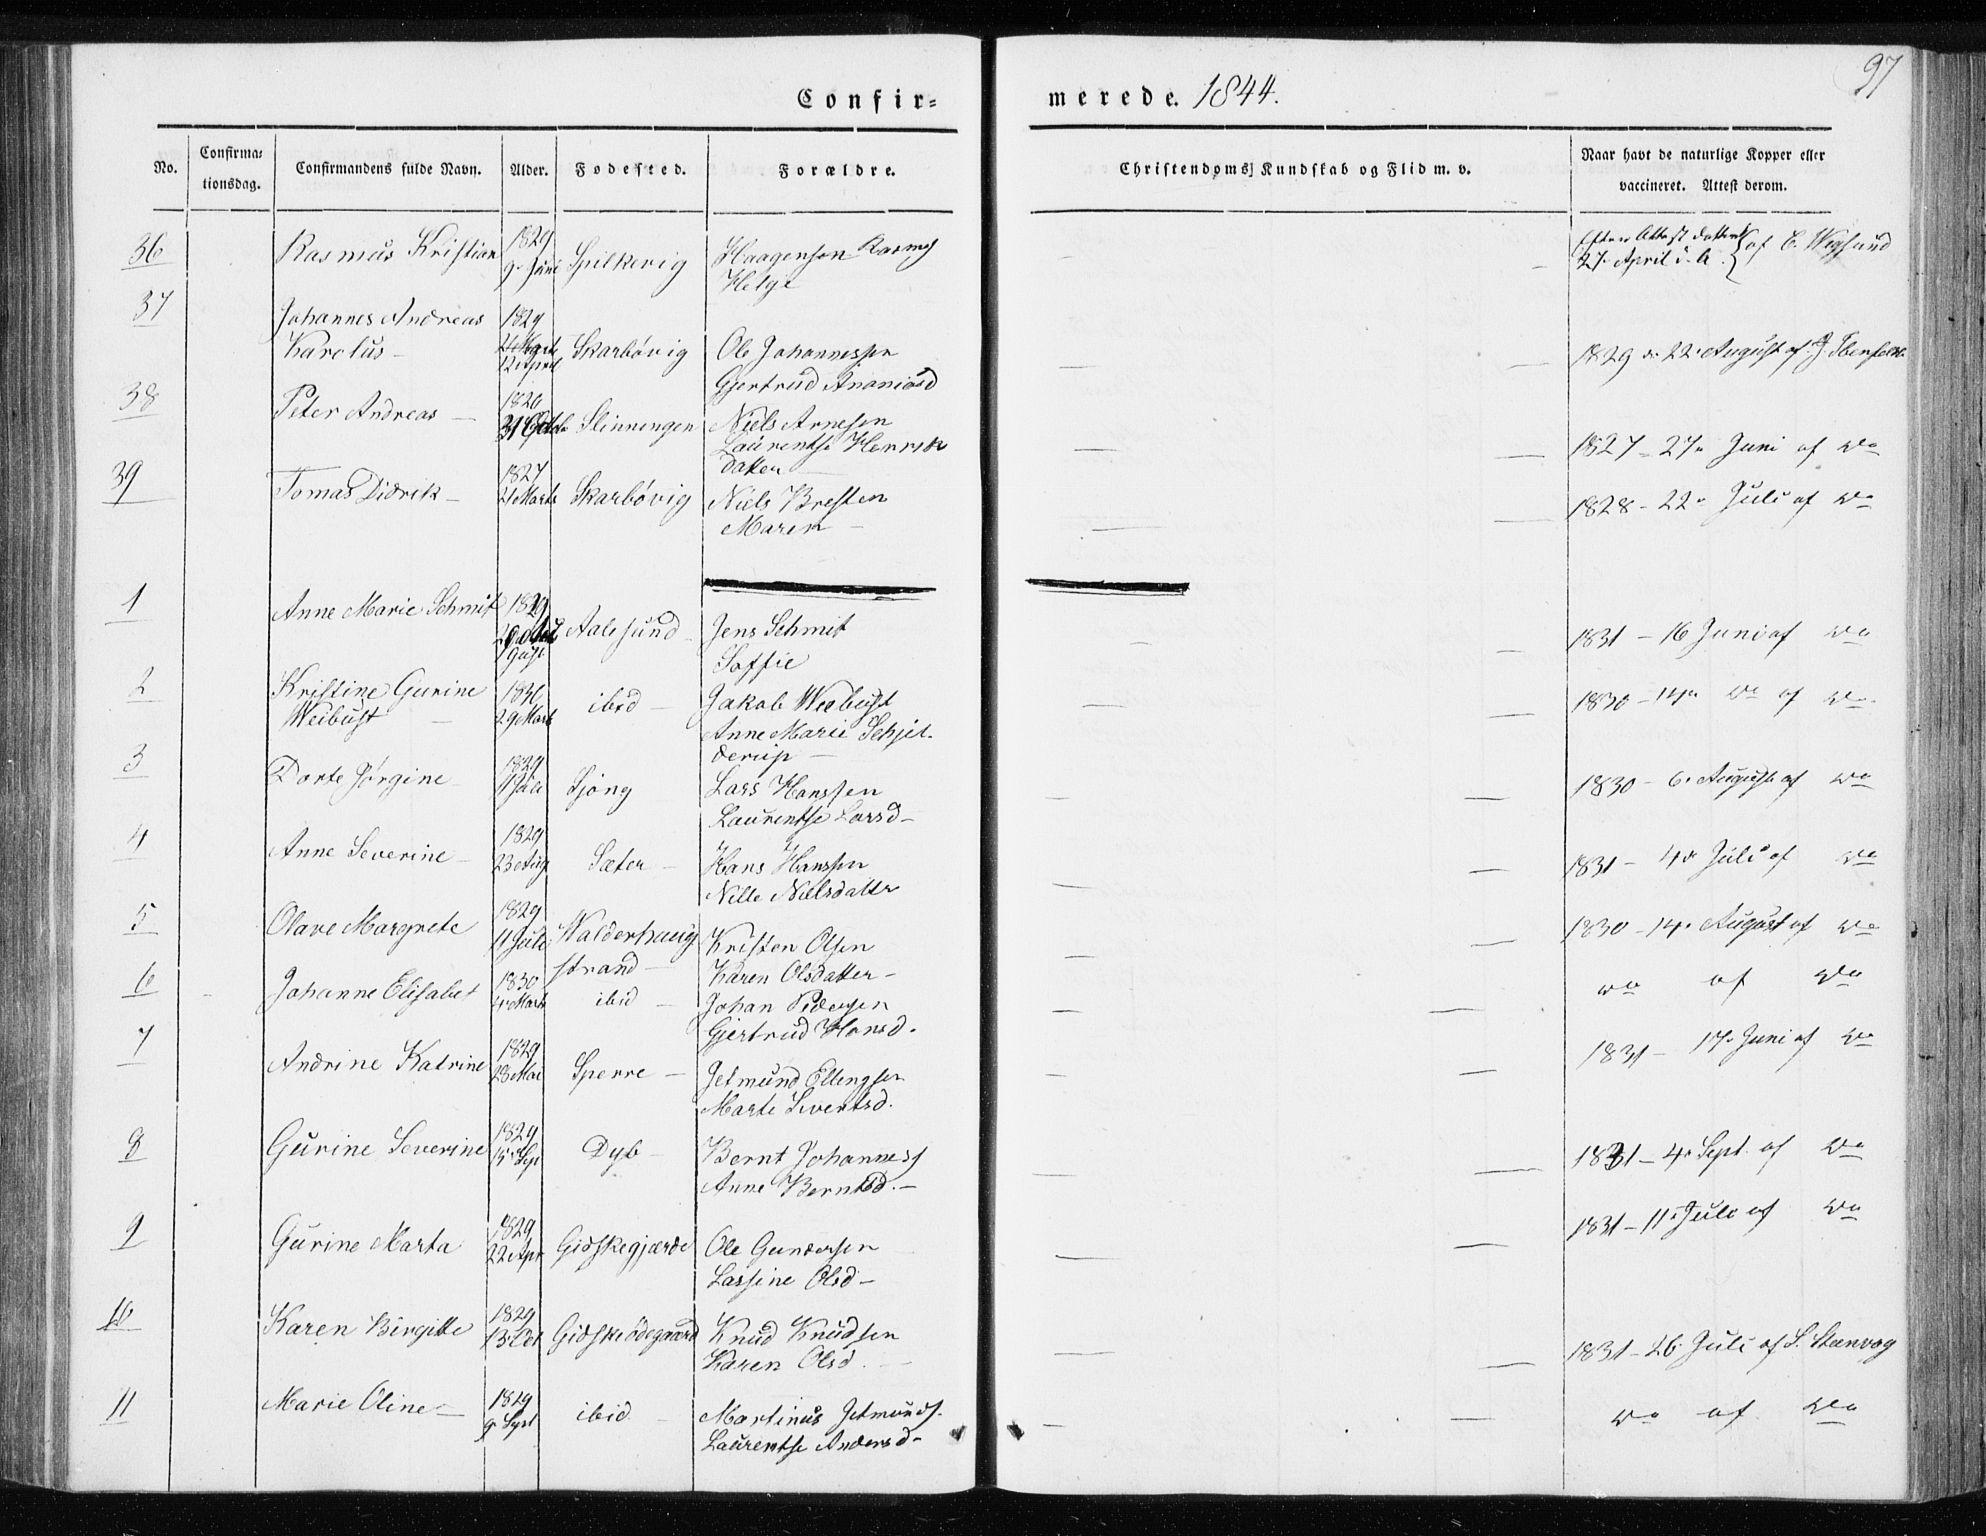 97
Confir= merede. 1844.
No. Confirma= tionsdag. Confirmandens fulde Navn. Alder. Fødested. Forældre. Christendoms Kundskab og Flid m. v. Naar havt de naturlige Kopper eller vaccineret. Attest derom.
36 Rasmus Kristian 1829 9. Juni Spilkevig Haagensen Rasmus
Helge
Efter Attest datteret
27. April d. A. af C. Wegsund
37 Johannes Andreas 1829
Karolus – 12 April Skarbøvig Ole Johannessen — — 1829 d. 22. August af J. Ibenfeldt
Gjertrud Ananiasd
38 Peter Andreas — Slinningen Niels Arnesen
Laurentse Henrik
datter — — 1827 – 27. Juni af do
39 Tomas Didrik – 1827 21 Marts Skarbøvig Niels Bresten — — 1828 – 22. Juli af do
Maren –
1 Anne Marie Schmit 1829 Aalesund – Jens Schmit — — 1831 – 16 Juni af do
Soffie
2 Kristine Gurine 1830
Weibust — 29 Marts ibid – Jakob Weibust — — 1830 – 14. do af do
Anne Marie Schjel-
derup –
3 Dorte Jørgine 1829 Juli Gjøng Lars Hanssen — — 1830 – 6. August af do
Laurentse Larsd –
4 Anne Severine – 1829 23 Aug Sæter – Hans Hanssen — — 1831 – 4. Juli af do
Nille Nielsdatter
5 Olave Margrete 1829 11 Juli Walderhaug Kristen Olsen — — 1830 – 14. August af do
strand – Karen Olsdatter –
6 Johanne Elisabet 1830 4. Marts ibid – Johan Pedersen — — do af do
Gjertrud Hansd.
7 Andrine Katrine 1829 28 Mai Sperre – Jetmund Ellingsen — — 1831 – 17. Juni af do
Marte Sivertsd.
8 Gurine Severine 1829 15. Sep Dyb – Bernt Johanness — 1831 – 4. Sept. af do
Anne Berntsd. –
9 Gurine Marta 1829 22 Apr Gidskegjærde Ole Gundersen — — 1831 – 11. Juli af do
Lassine Olsd –
10 Karen Birgitte 1829 13. Oct Gidskeødegaard Knud Knudsen — — 1831 – 26. Juli af S. Steenvog
Karen Olsd.
11 Marie Oline – 1829 9. Sept ibid – Martinus Jetmunds. — — do af do
Laurentse Andersd –